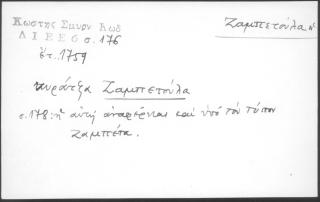 Κωστης Σμυρν Κωδ
Δ Ι Ε Ε 6 σ. 176
ἔτ. 1759
Ζαμπετούλα ἡ
κυράτζα Ζαμπετούλα
σ. 178: ἡ αὐτή ἀναφέρεται καί ὑπό τόν τύπον
Ζαμπέτα.